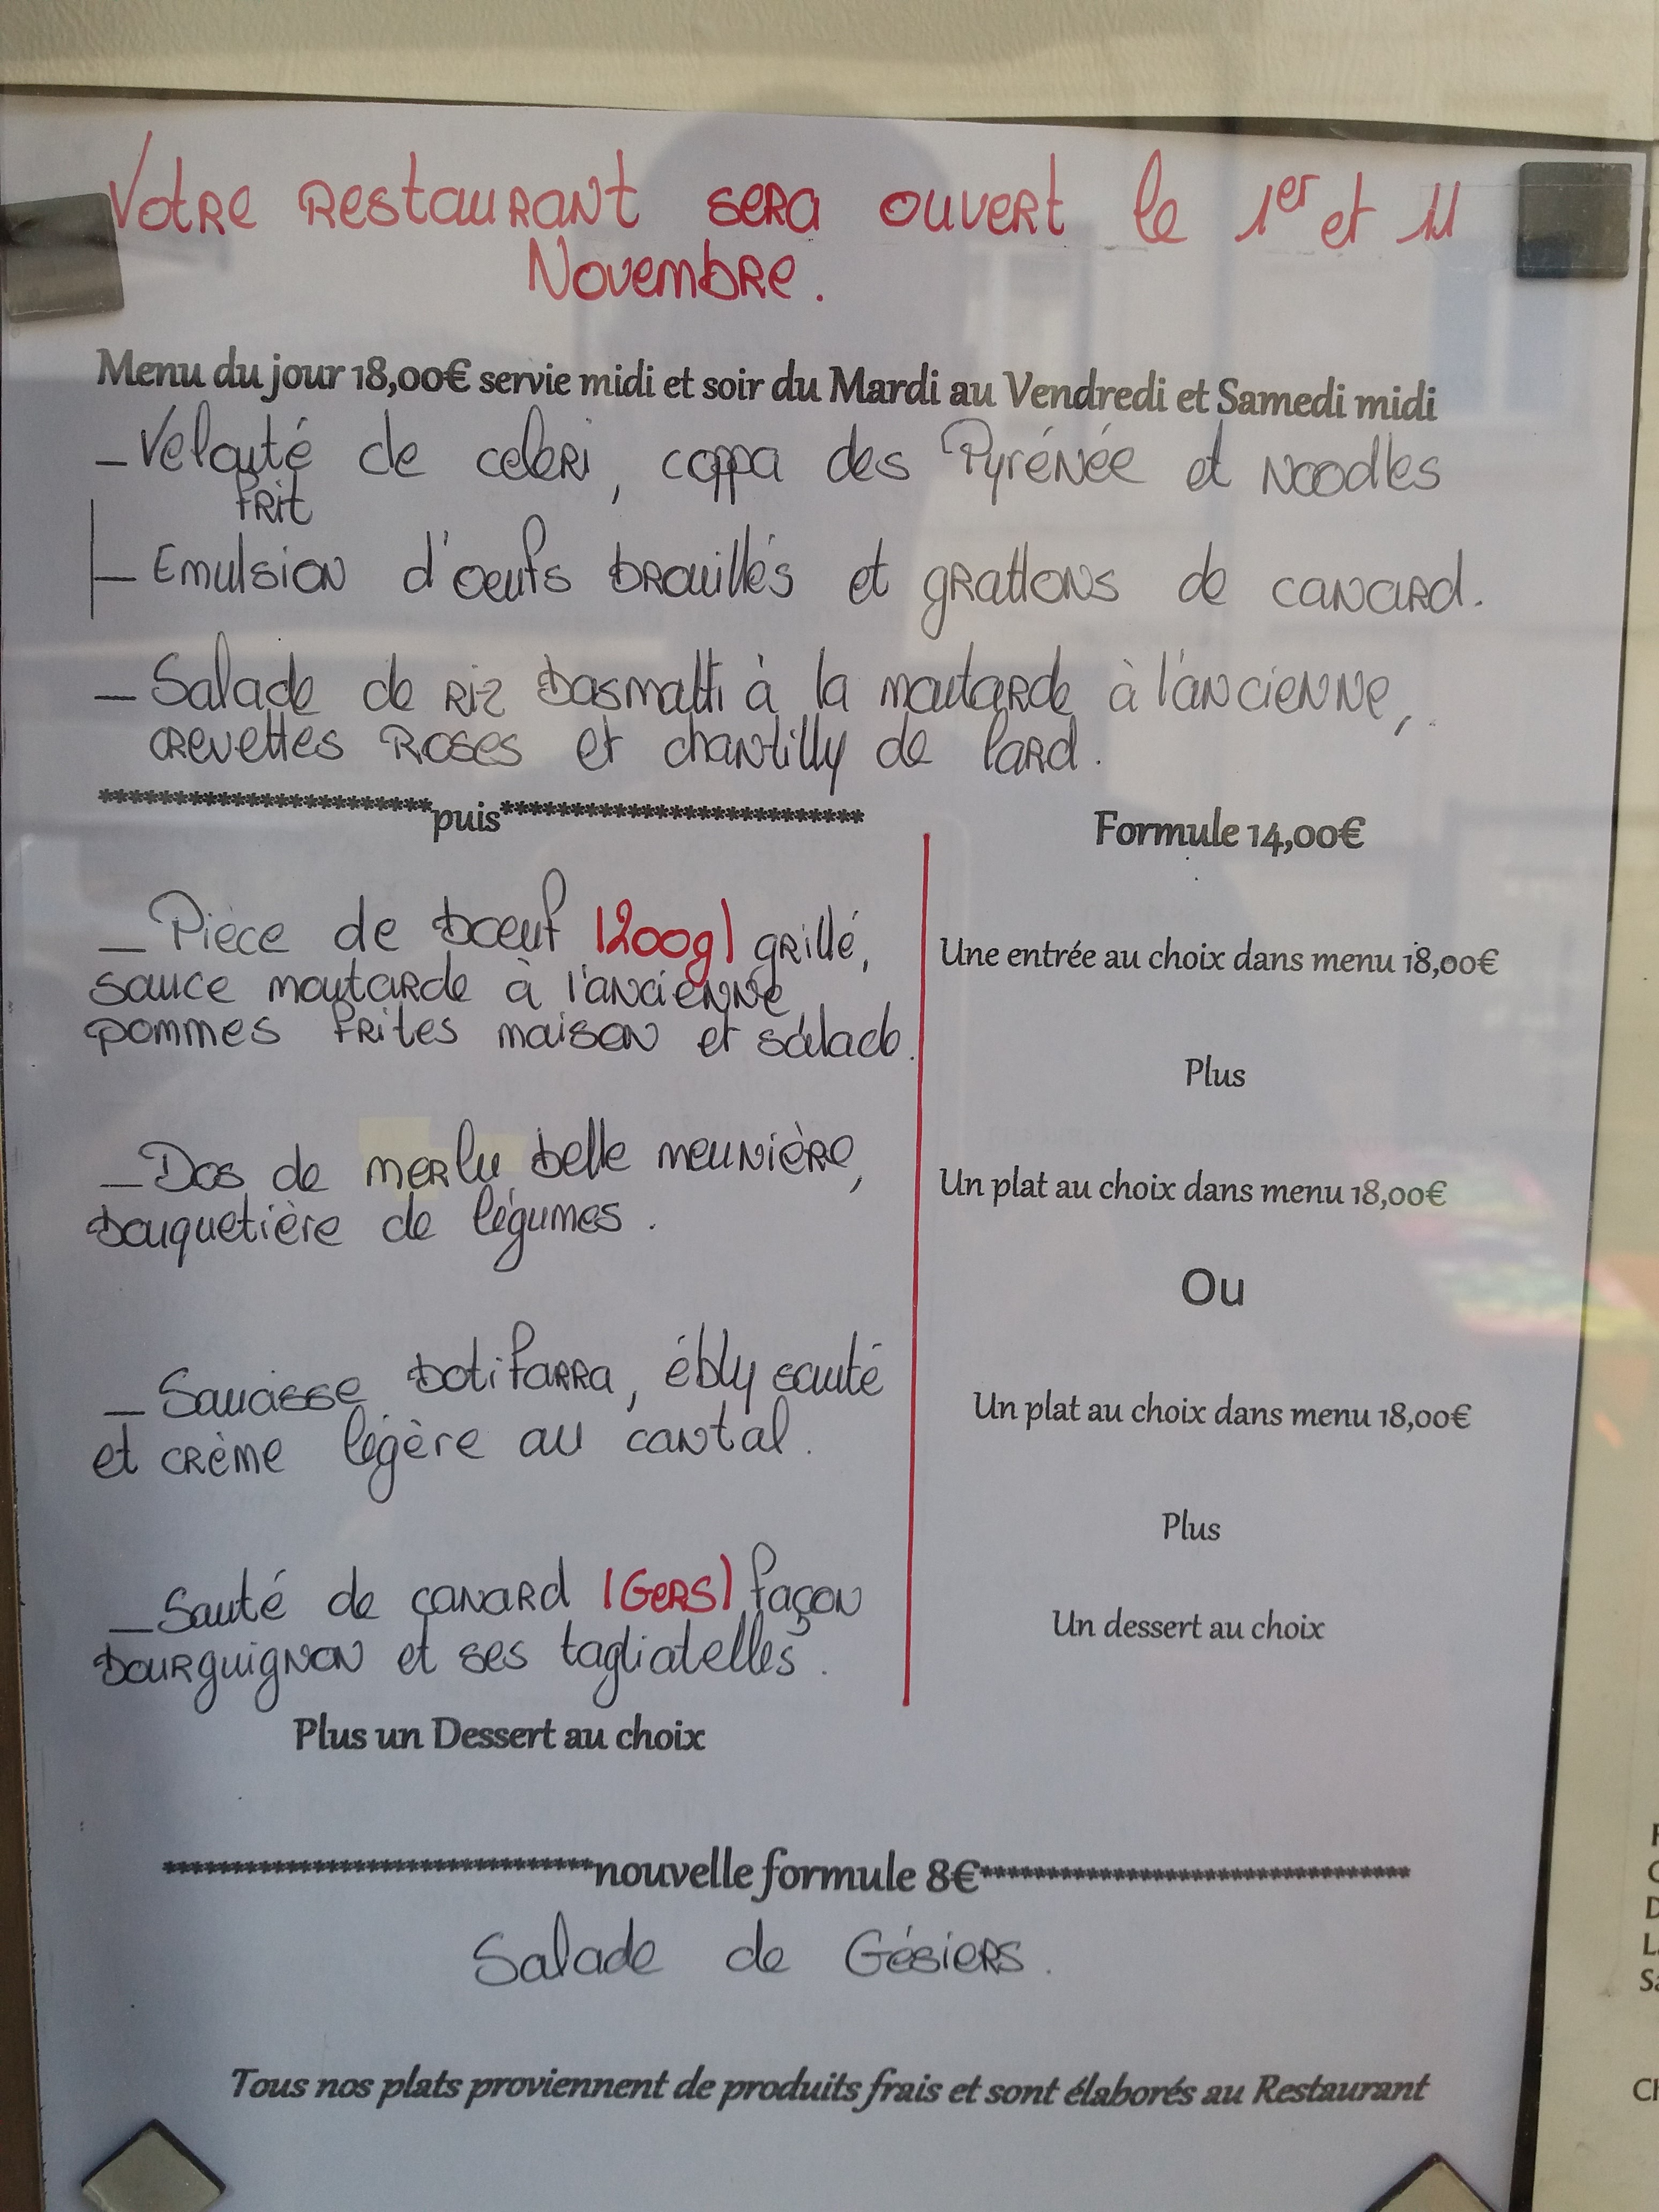 Votre restaurant sera ouvert le 1er et 11
Novembre.
Menu du jour 18,00€ servie midi et soir du Mardi au Vendredi et Samedi midi
_ Velouté de celeri, coppa des Pyrénée et Noodles
frit
_ Emulsion d'oeufs brouillés et grattons de canard.
_ Salade de riz basmatti à la moutarde à l'ancienne,
crevettes roses et chantilly de lard.
**********************puis************************
Formule 14,00€
_ Pièce de boeuf (200g) grillé,
sauce moutarde à l'ancienne,
pommes frites maison et salade.
_ Dos de merlu belle meunière,
bouquetière de légumes.
_ Saucisse botifarra, ébly sauté
et crème légère au cantal.
_ Sauté de canard (Gers) façon
bourguignon et ses tagliatelles.
Plus un Dessert au choix
Une entrée au choix dans menu 18,00€
Plus
Un plat au choix dans menu 18,00€
Ou
Un plat au choix dans menu 18,00€
Plus
Un dessert au choix
******************************nouvelle formule 8€******************************
Salade de Gésiers.
Tous nos plats proviennent de produits frais et sont élaborés au Restaurant